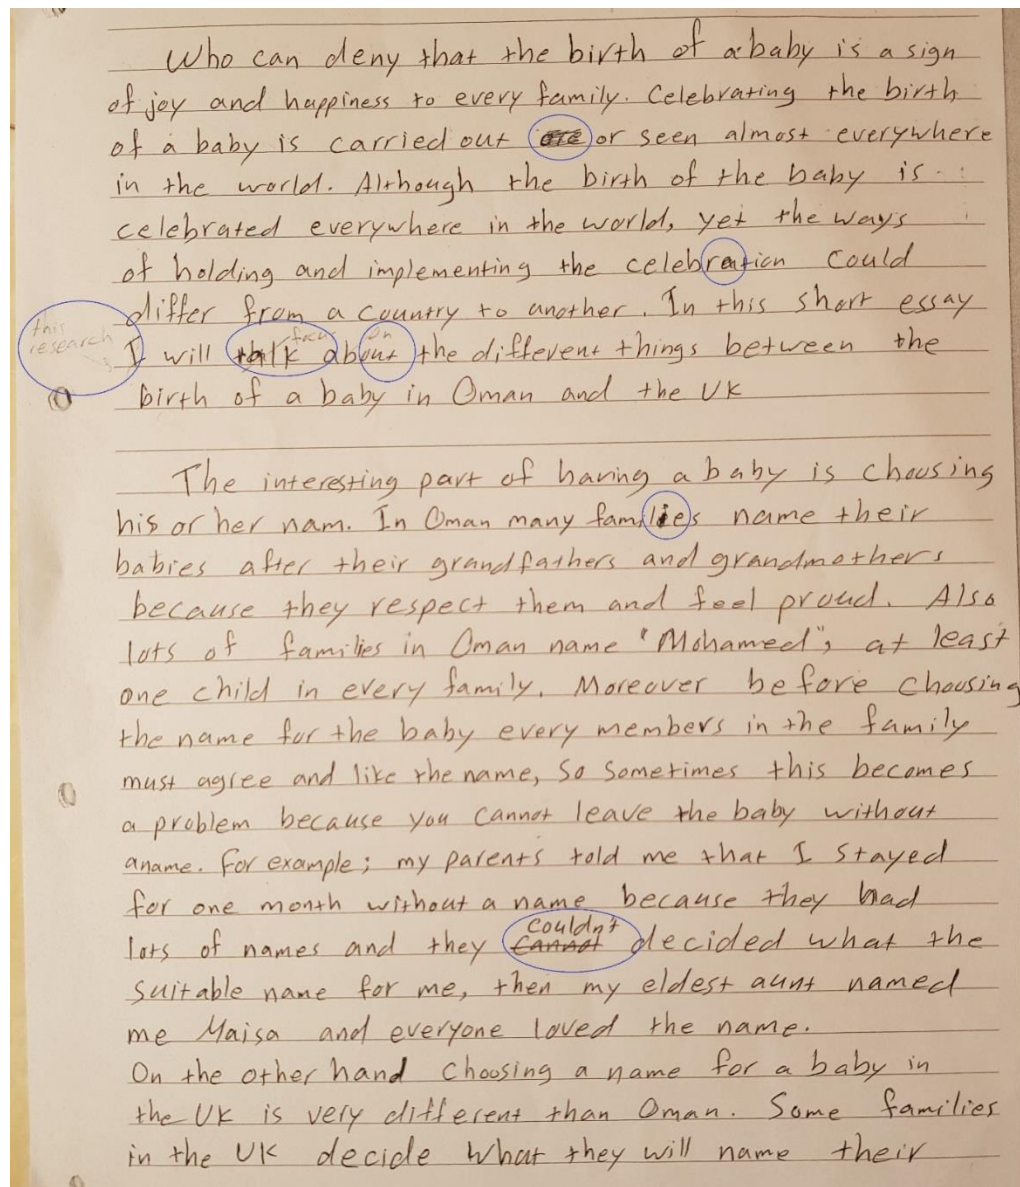 Who can deny that the birth of a baby is a sign
of joy and happiness to every family. Celebrating the birth
of a baby is carried out or seen almost everywhere
in the world. Although the birth of the baby is
celebrated everywhere in the world, yet the ways
of holding and implementing the celebration could
differ from a country to another. In this short essay
this research
I will talk focus about on the different things between the
birth of a baby in Oman and the UK
The interesting part of having a baby is choosing
his or her nam. In Oman many families name their
babies after their grandfathers and grandmothers
because they respect them and feel proud. Also
lots of families in Oman name "Mohamed", at least
one child in every family. Moreover before choosing
the name for the baby every members in the family
must agree and like the name, So sometimes this becomes
a problem because you cannot leave the baby without
aname. For example; my parents told me that I stayed
for one month without a name because they had
lots of names and they cannot couldn't decided what the
suitable name for me, then my eldest aunt named
me Maisa and everyone loved the name.
On the other hand choosing a name for a baby in
the UK is very different than Oman. Some families
in the UK decide what they will name their